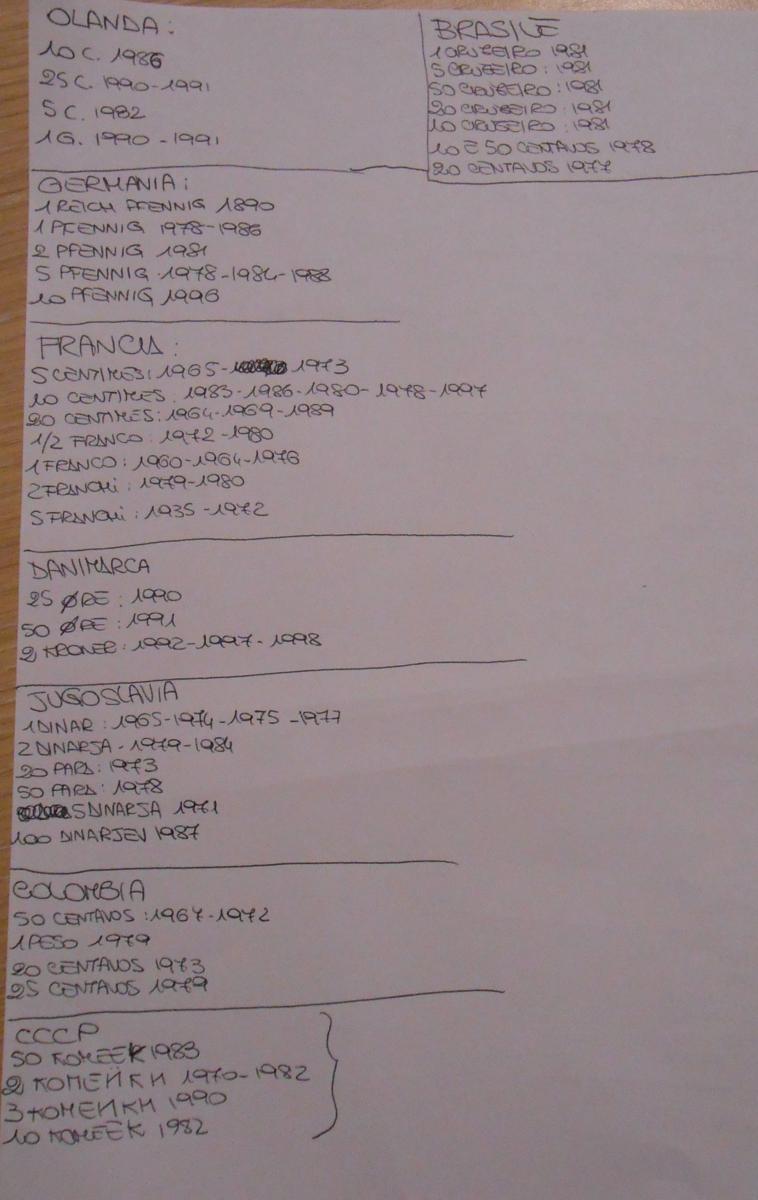 OLANDA:
10 C. 1986
25 C. 1990-1991
5 C. 1982
1G. 1990-1991
BRASILE
1 CRUZEIRO 1981
5 CRUZEIRO: 1981
50 CRUZEIRO: 1981
20 CRUZEIRO: 1981
10 CRUZEIRO: 1981
10 E 50 CENTAVOS 1978
20 CENTAVOS 1977
GERMANIA:
1 REICH PFENNIG 1890
1 PFENNIG 1978-1986
2 PFENNIG 1981
5 PFENNIG 1978-1984-1988
10 PFENNIG 1996
FRANCIA:
5 CENTIMES: 1965- 1973
10 CENTIMES: 1983-1986-1980-1978-1997
20 CENTIMES: 1964-1969-1989
1/2 FRANCO: 1972-1980
1 FRANCO: 1960-1964-1976
2 FRANCHI: 1979-1980
5 FRANCHI: 1935-1972
DANIMARCA
25 ØRE: 1990
50 ØRE: 1991
2 KRONER: 1992-1997-1998
JUGOSLAVIA
1 DINAR: 1965-1974-1975-1977
2 DINARJA-1979-1984
20 PARA: 1973
50 PARA: 1978
5 DINARJA 1971
100 DINARJEV 1987
COLOMBIA
50 CENTAVOS: 1967-1972
1 PESO 1979
20 CENTAVOS 1973
25 CENTAVOS 1979
CCCP
50 КОПЕЕК 1983
2 КОПЕЙКИ 1970-1982
3 КОПЕЙКИ 1990
10 КОПЕЕК 1982